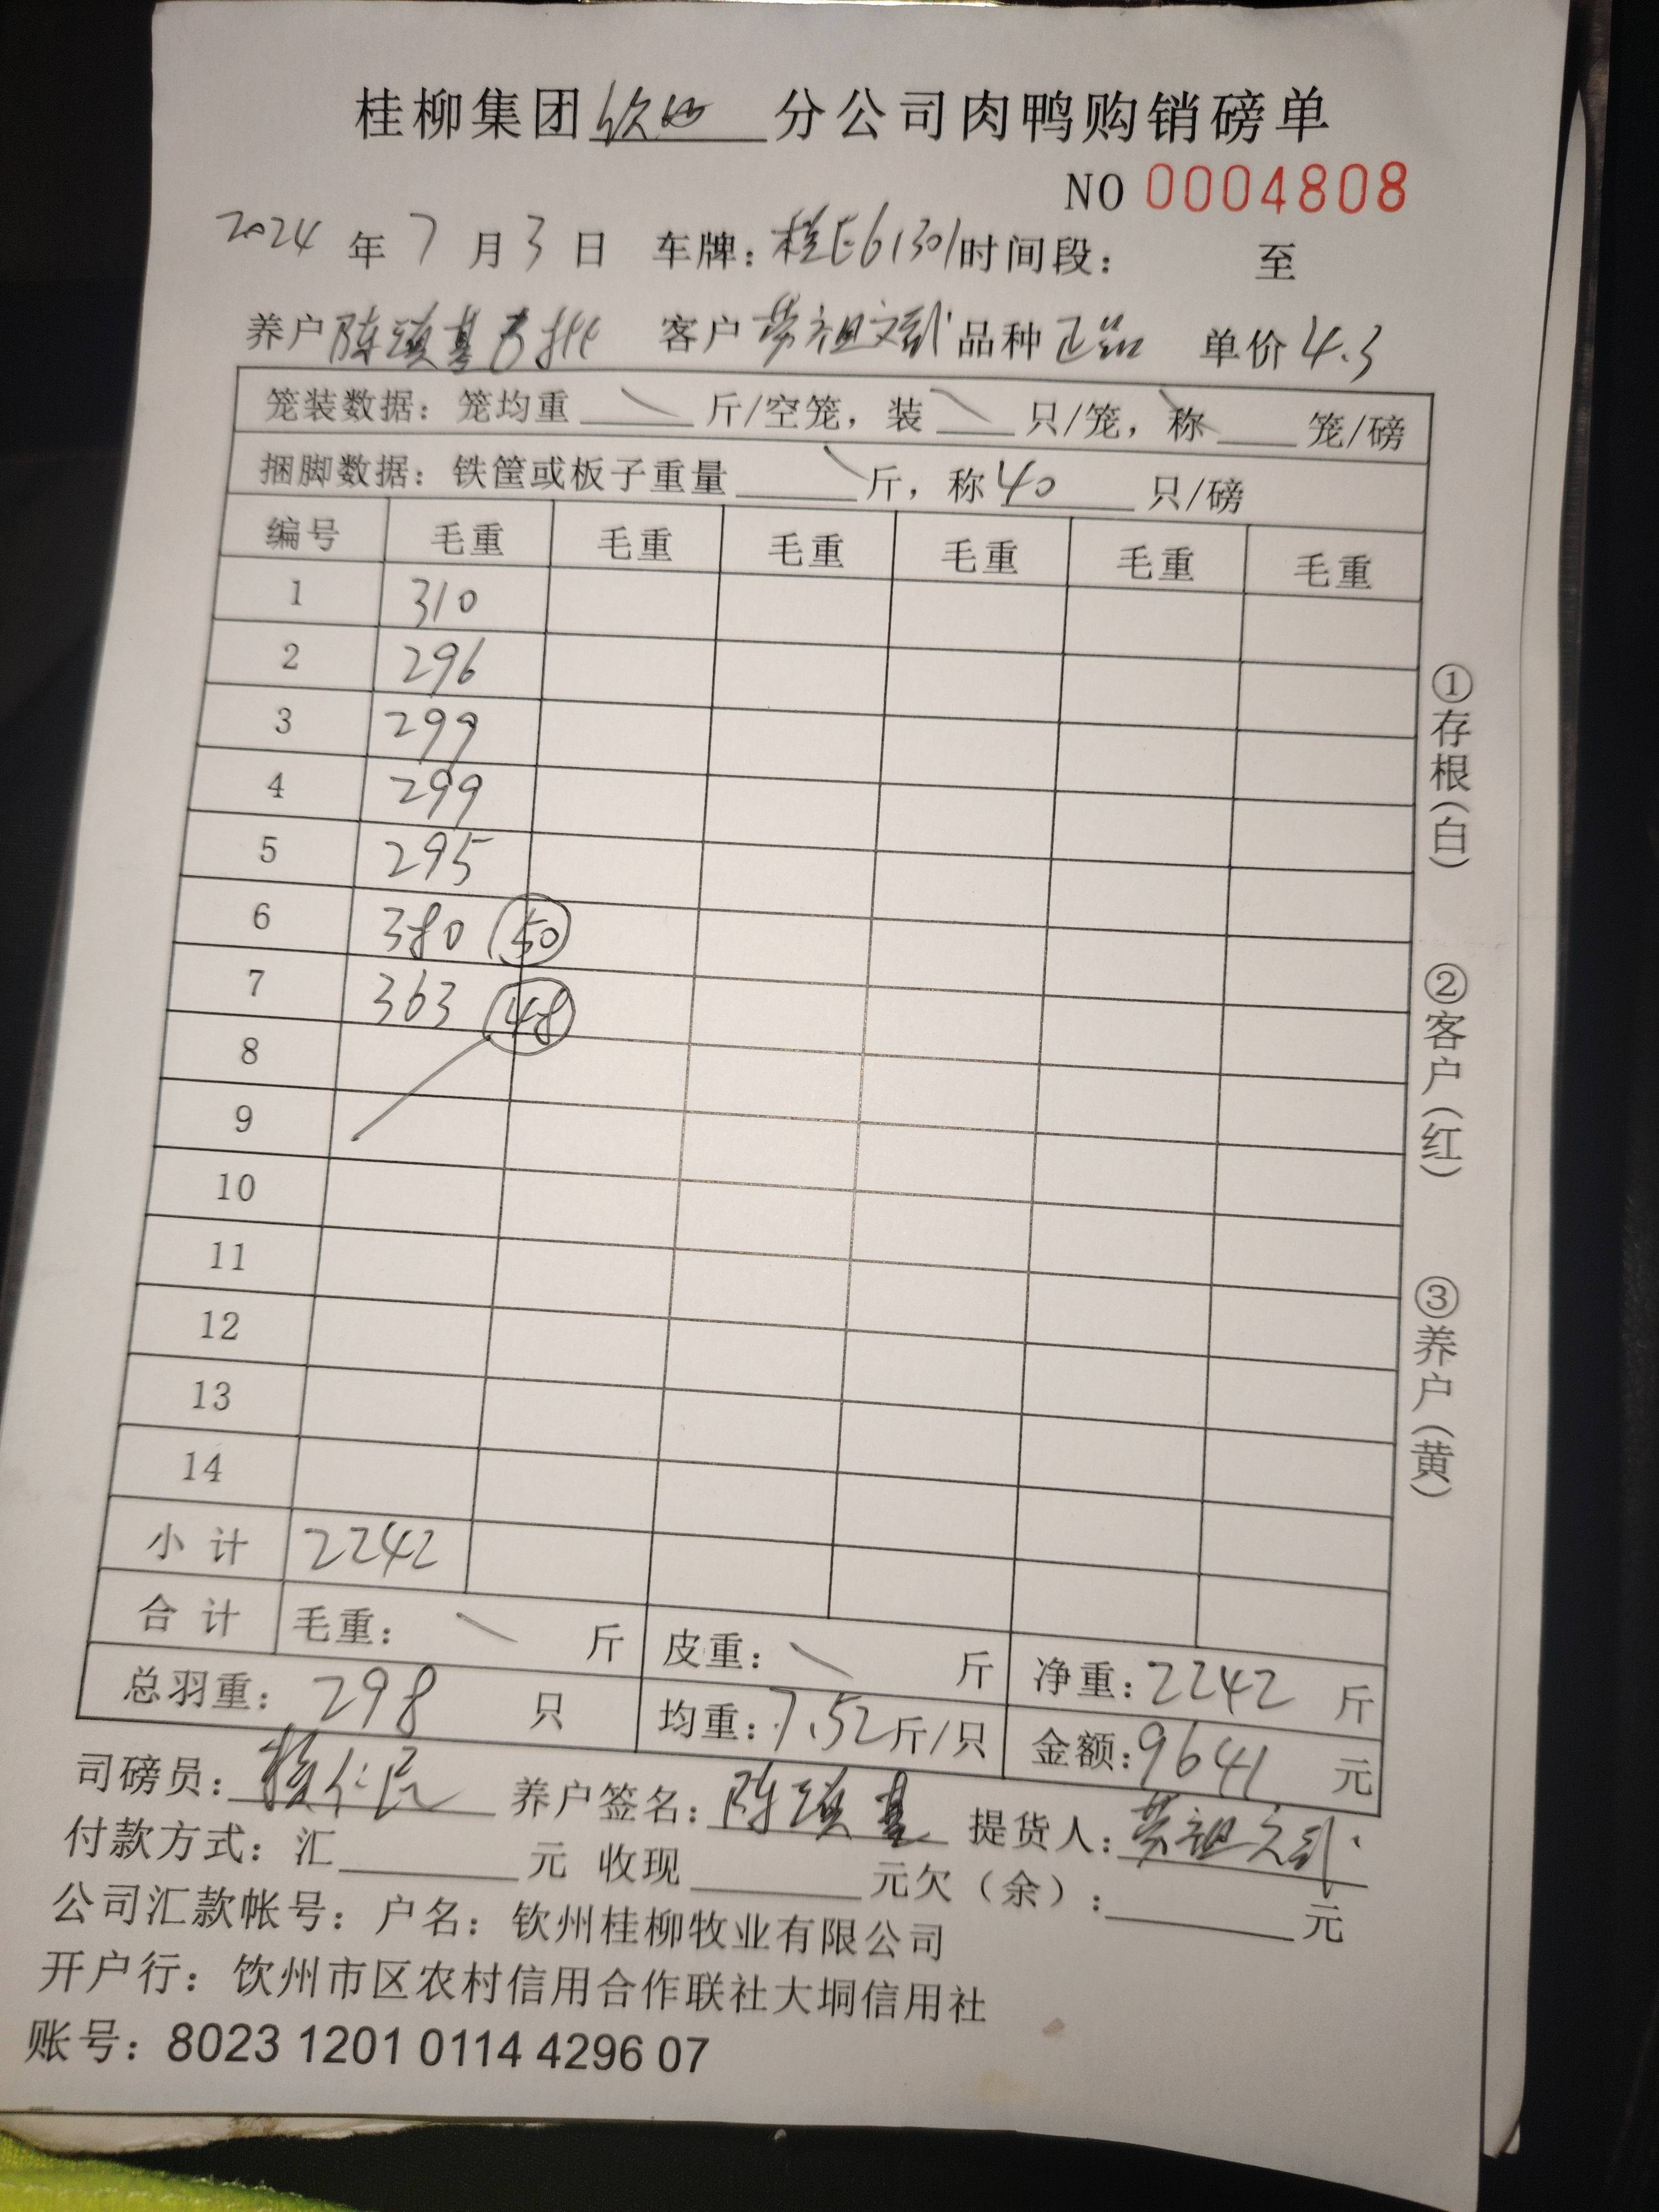 桂柳集团钦州分公司肉鸭购销磅单
NO 0004808
2024年7月3日 车牌：桂E61301时间段： 至
养户陈 基 批 客户劳祖文 品种正品 单价4.3
笼装数据：笼均重 斤/空笼，装 只/笼，称 笼/磅
捆脚数据：铁筐或板子重量 斤，称40只/磅
编号 毛重 毛重 毛重 毛重 毛重 毛重
1 310
2 296
3 299
4 299
5 295
6 380 50
7 363 48
8
9
10
11
12
13
14
小计 2242
合计 毛重： 斤 皮重： 斤 净重：2242 斤
总羽重：298 只 均重：7.52斤/只 金额：9641 元
司磅员： 养户签名：陈 基 提货人：劳祖文
付款方式：汇 元 收现 元欠（余）： 元
公司汇款帐号：户名：钦州桂柳牧业有限公司
开户行：饮州市区农村信用合作联社大垌信用社
账号：8023 1201 0114 4296 07
①存根（白）
②客户（红）
③养户（黄）